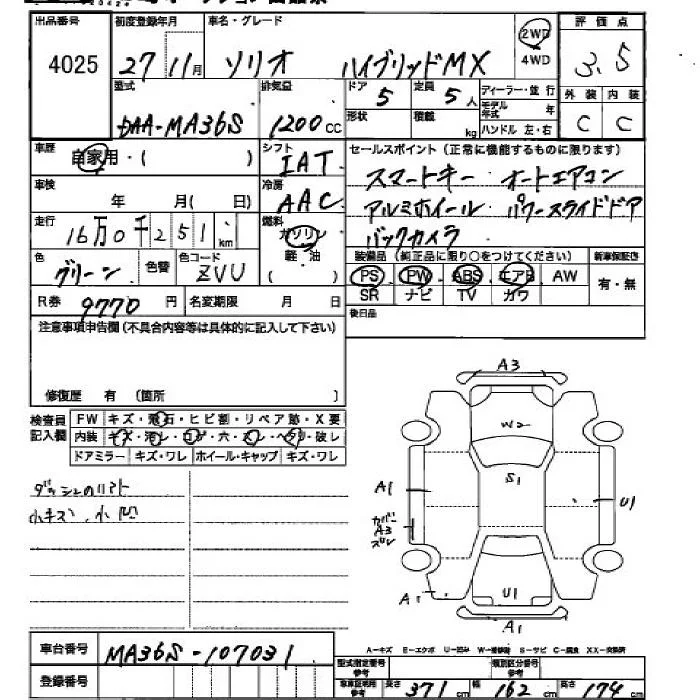 出品番号 初度登録年月 車名・グレード 評価点
4025 27 11月 ソリオ ハイブリッドMX 2WD 4WD 3.5
型式 排気量 ドア 定員 ディーラー・並行 外装 内装
DAA-MA36S 1200cc 5 5人 モデル年式 年
形状 積載 kg ハンドル 左・右 C C
車歴 自家用・( ) シフト IAT
セールスポイント(正常に機能するものに限ります)
スマートキー オートエアコン
車検 年 月( 日) 冷房 AAC
アルミホイール パワースライドドア
走行 16万0千251km 燃料 ガソリン 軽油 ( )
バックカメラ
色 グリーン 色替 色コード ZVU
装備品(純正品に限り○をつけてください) 新車保証書
PS PW ABS エアB AW 有・無
SR ナビ TV カワ
R券 9770円 名変期限 月 日
後日品
注意事項申告欄(不具合内容等は具体的に記入して下さい)
修復歴 有 (箇所 )
検査員記入欄 FW キズ・飛石・ヒビ割・リペア跡・X要
内装 キズ・汚レ・コゲ・穴・スレ・ヘタリ・破レ
ドアミラー キズ・ワレ ホイール・キャップ キズ・ワレ
小キズ 小凹
A3
W2
S1
A1
U1
カバー
A3
ズレ
A1
U1
A1
A-キズ E-エクボ U-凹み W-補修跡 S-サビ C-腐食 XX-交換済
車台番号 MA36S-107031
登録番号
型式指定番号 参考 類別区分番号 参考
車庫証明用 参考 長さ 371cm 幅 162cm 高さ 174cm